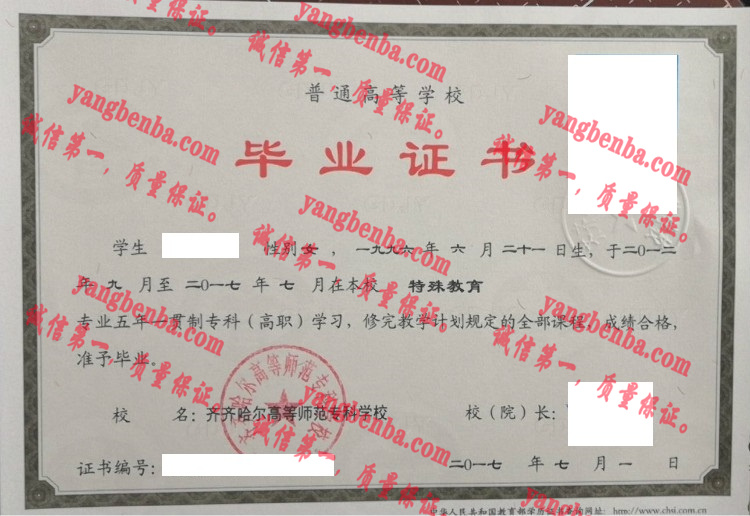 普通高等学校
毕业证书
学生 性别 女 ， 一九九六 年 六 月 二十一 日生，于二〇一二
年 九 月至 二〇一七 年 七 月在本校 特殊教育
专业五年一贯制专科（高职）学习，修完教学计划规定的全部课程，成绩合格，
准予毕业。
校 名：齐齐哈尔高等师范专科学校 校（院）长：
证书编号： 二〇一七 年 七 月 一 日
中华人民共和国教育部学历证书查询网址：http://www.chsi.com.cn
齐齐哈尔高等师范专科学校
yangbenba.com
诚信第一，质量保证。
yangbenba.com
诚信第一，质量保证。
yangbenba.com
诚信第一，质量保证。
yangbenba.com
诚信第一，质量保证。
yangbenba.com
诚信第一，质量保证。
yangbenba.com
诚信第一，质量保证。
yangbenba.com
诚信第一，质量保证。
yangbenba.com
诚信第一，质量保证。